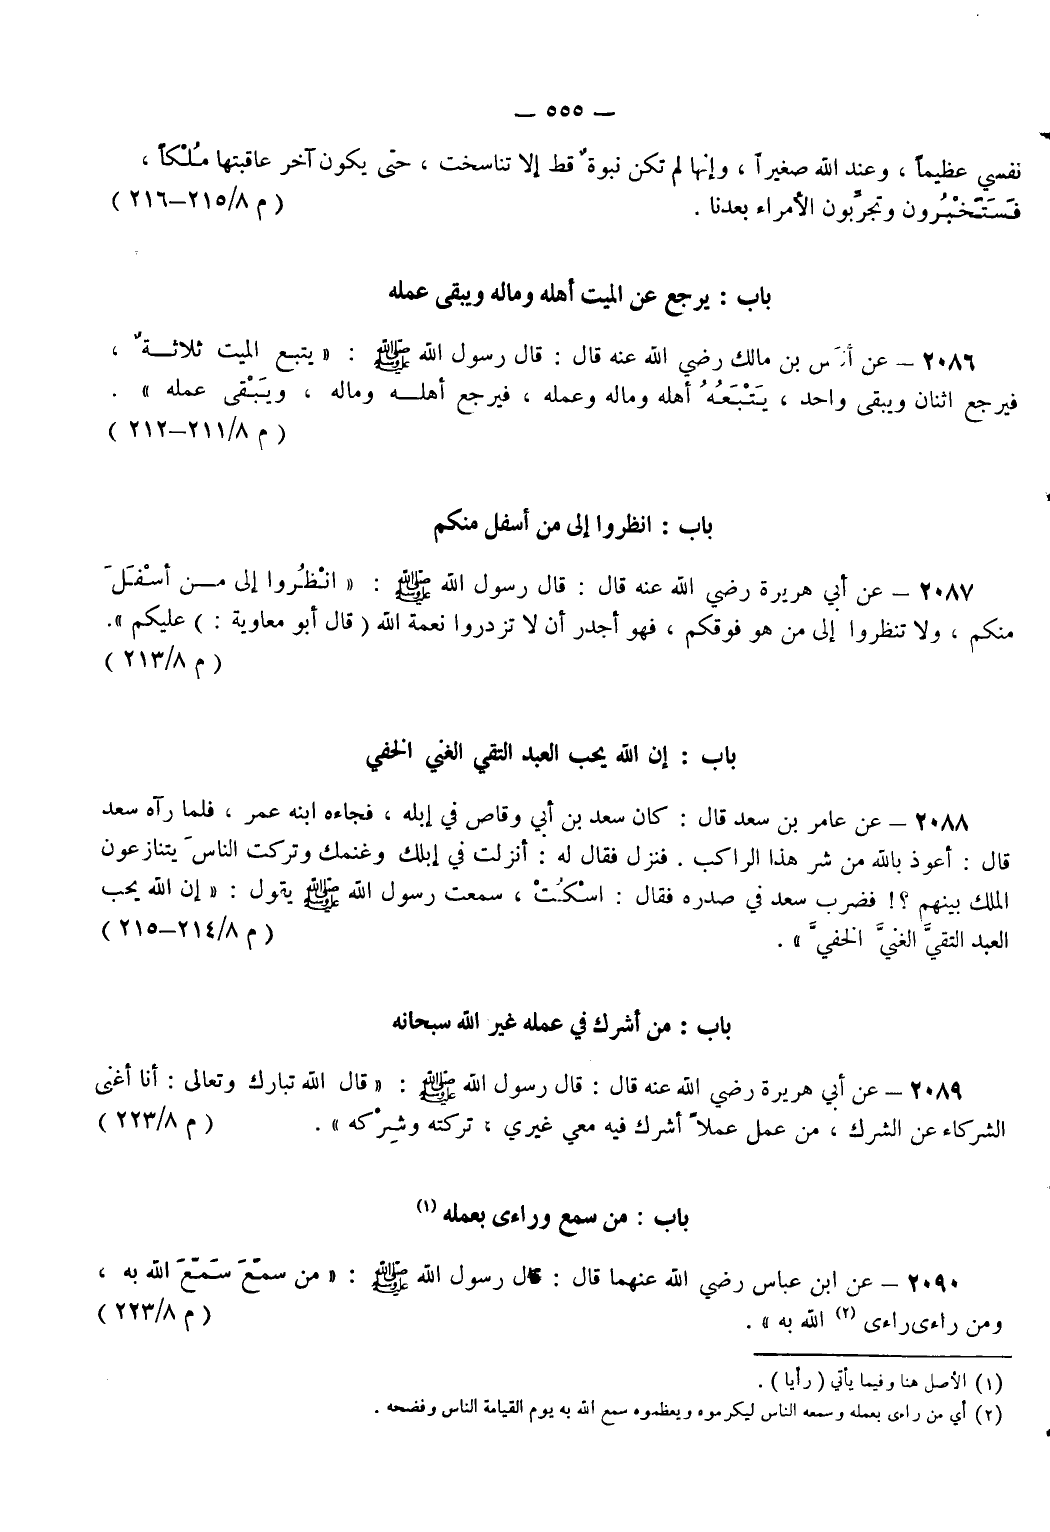 — ٥٥٥ —
نفسي عظيماً ، وعند الله صغيراً ، وإنها لم تكن نبوةٌ قط إلا تناسخت ، حتى يكون آخر عاقبتها مُلْكاً ،
فَسَتَخْبُرون وتجرِّبون الأمراء بعدنا . ( م ٢١٥/٨–٢١٦ )
باب : يرجع عن الميت أهله وماله ويبقى عمله
٢٠٨٦ – عن أنَس بن مالك رضي الله عنه قال : قال رسول الله ﷺ : « يتبع الميت ثلاثـــةٌ ،
فيرجع اثنان ويبقى واحد ، يَتْبَعُهُ أهله وماله وعمله ، فيرجع أهلـــه وماله ، ويَبْقى عمله » .
( م ٢١١/٨–٢١٢ )
باب : انظروا إلى من أسفل منكم
٢٠٨٧ – عن أبي هريرة رضي الله عنه قال : قال رسول الله ﷺ : « انْظُروا إلى مـــن أسْفَلَ
منكم ، ولا تنظروا إلى من هو فوقكم ، فهو أجدر أن لا تزدروا نعمة الله ( قال أبو معاوية : ) عليكم ».
( م ٢١٣/٨ )
باب : إن الله يحب العبد التقي الغني الخفي
٢٠٨٨ – عن عامر بن سعد قال : كان سعد بن أبي وقاص في إبله ، فجاءه ابنه عمر ، فلما رآه سعد
قال : أعوذ بالله من شر هذا الراكب . فنزل فقال له : أنزلت في إبلك وغنمك وتركت الناسَ يتنازعون
الملك بينهم ؟! فضرب سعد في صدره فقال : اسْكُتْ ، سمعت رسول الله ﷺ يقول : « إن الله يحب
العبد التقيَّ الغنيَّ الخفيَّ » . ( م ٢١٤/٨–٢١٥ )
باب : من أشرك في عمله غير الله سبحانه
٢٠٨٩ – عن أبي هريرة رضي الله عنه قال : قال رسول الله ﷺ : « قال الله تبارك وتعالى : أنا أغنى
الشركاء عن الشرك ، من عمل عملاً أشرك فيه معي غيري ، تركته وشِرْكه » . ( م ٢٢٣/٨ )
باب : من سمع وراءى بعمله (١)
٢٠٩٠ – عن ابن عباس رضي الله عنهما قال : قال رسول الله ﷺ : « من سمَّعَ سَمَّعَ الله به ،
ومن راءى راءى (٢) الله به » . ( م ٢٢٣/٨ )
(١) الأصل هنا وفيما يأتي ( رأيا ) .
(٢) أي من راءى بعمله وسمعه الناس ليكرموه ويعظموه سمع الله به يوم القيامة الناس وفضحه .